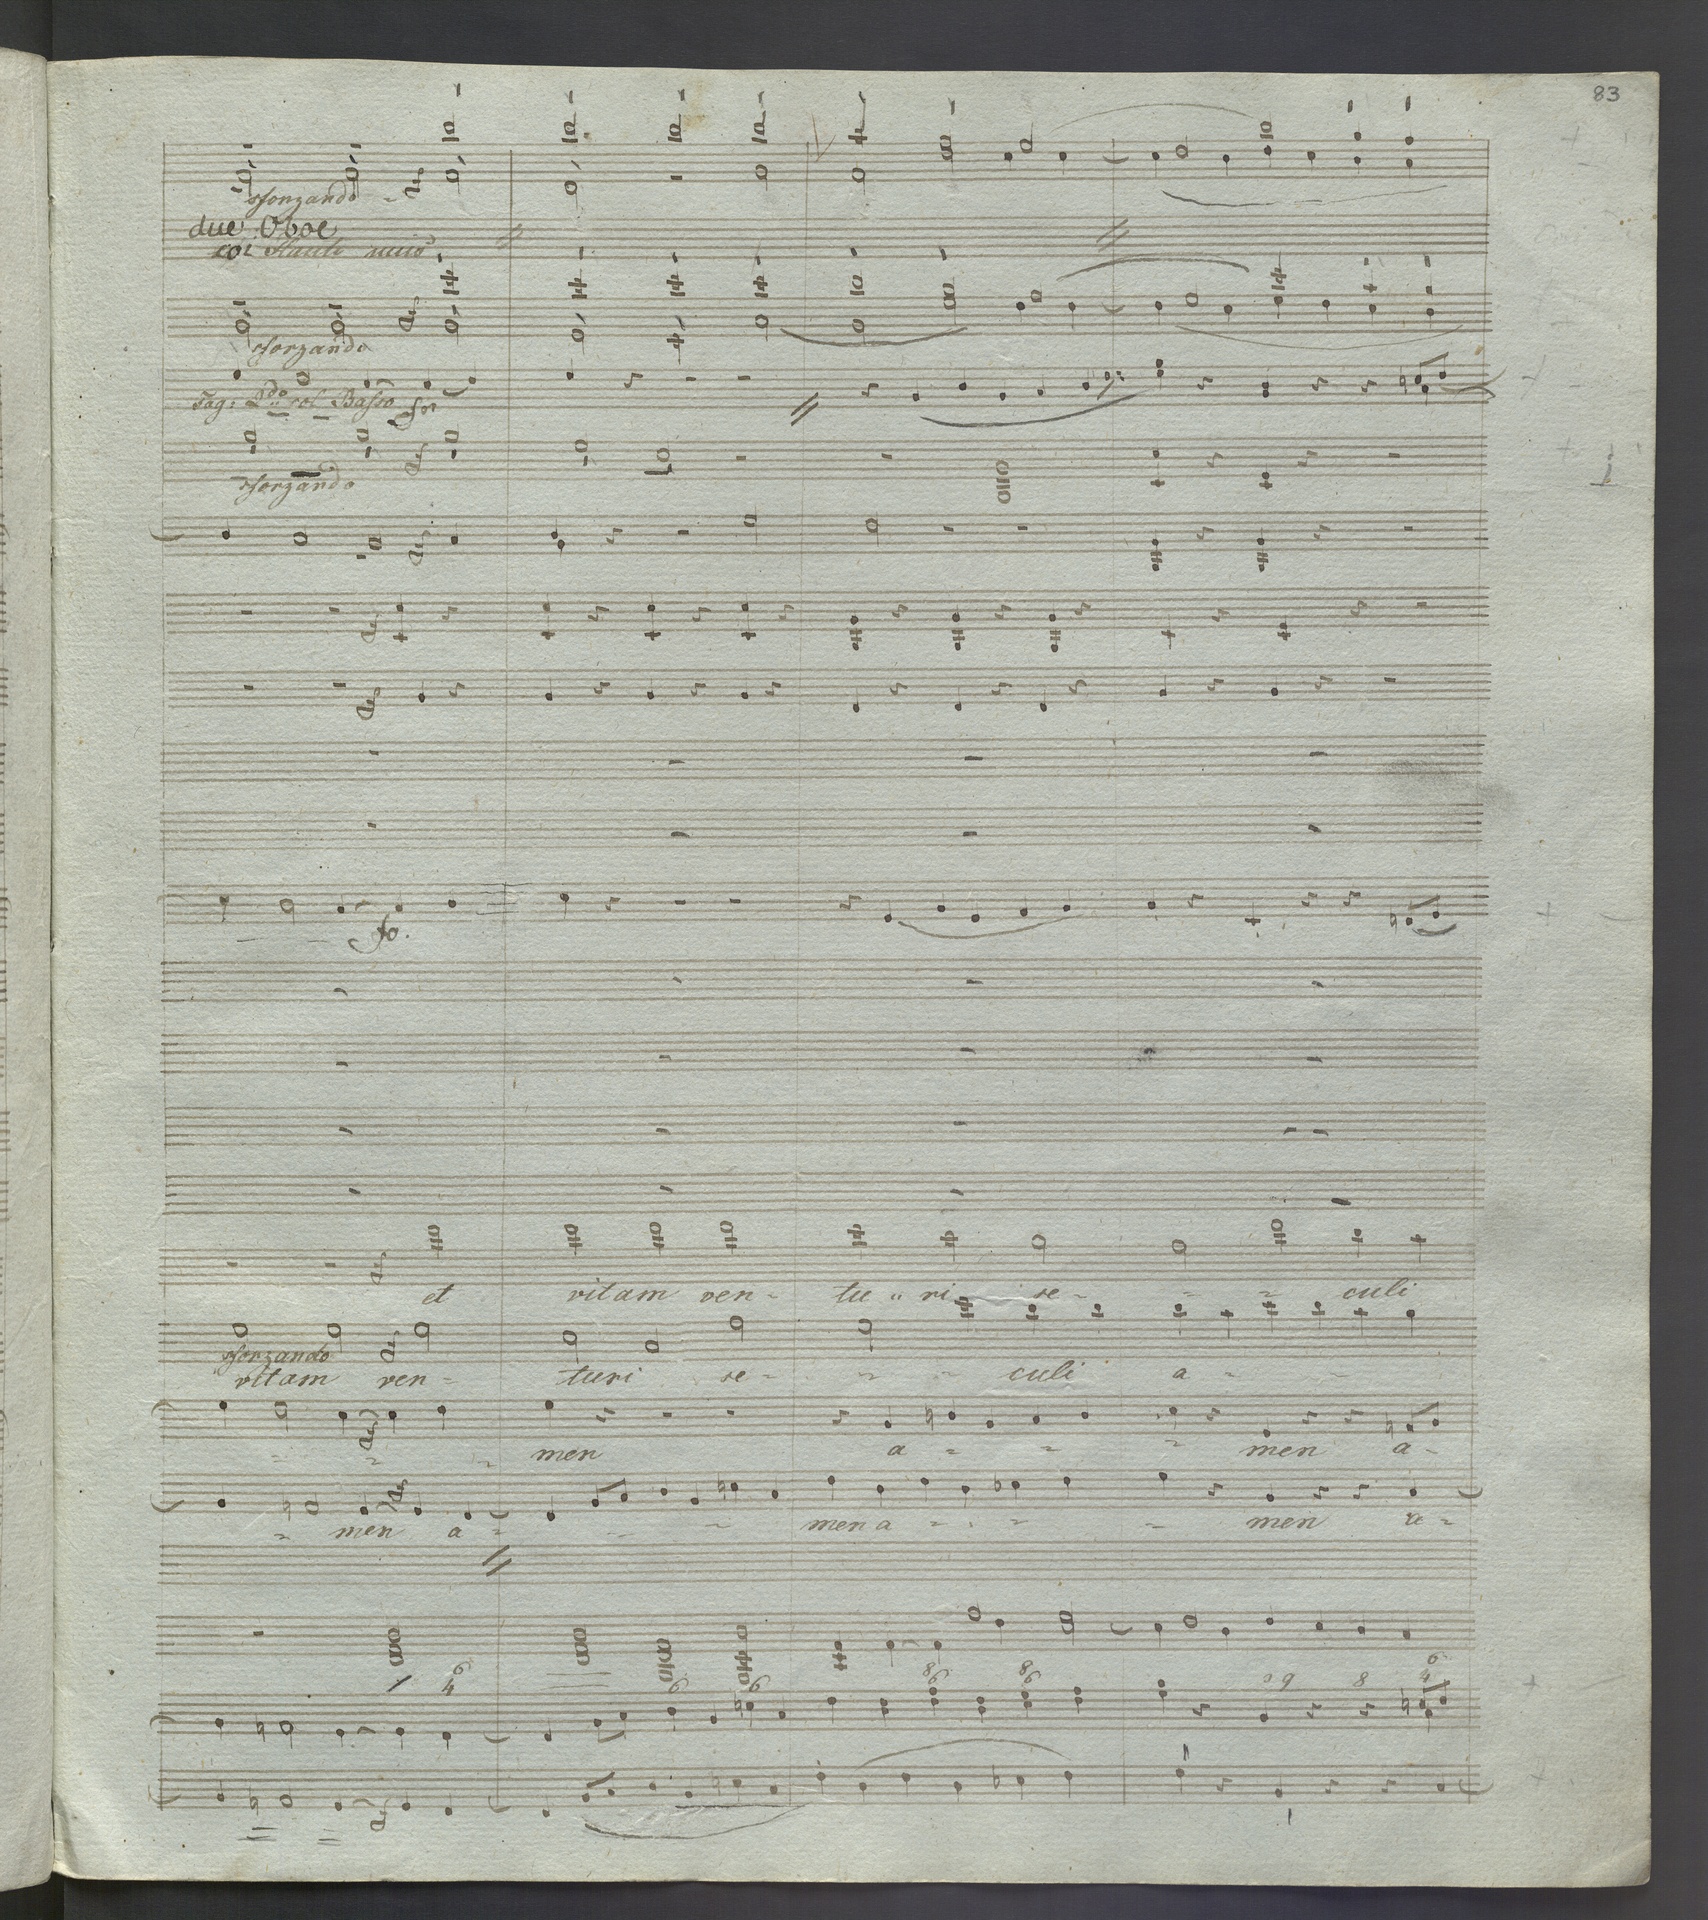 83
sforzando
due Oboe
col Flauti unis
sforzando
Fag: 2do col Basso
sforzando
fo.
et vitam ven- tu - ri se - - - culi
sforzando
vitam ven - turi se - - - culi a - -
- - - men a - - - men a -
- men a - - - men a - - - - men a -
6
4
6 6 8 6 8 6 9 8 6
4